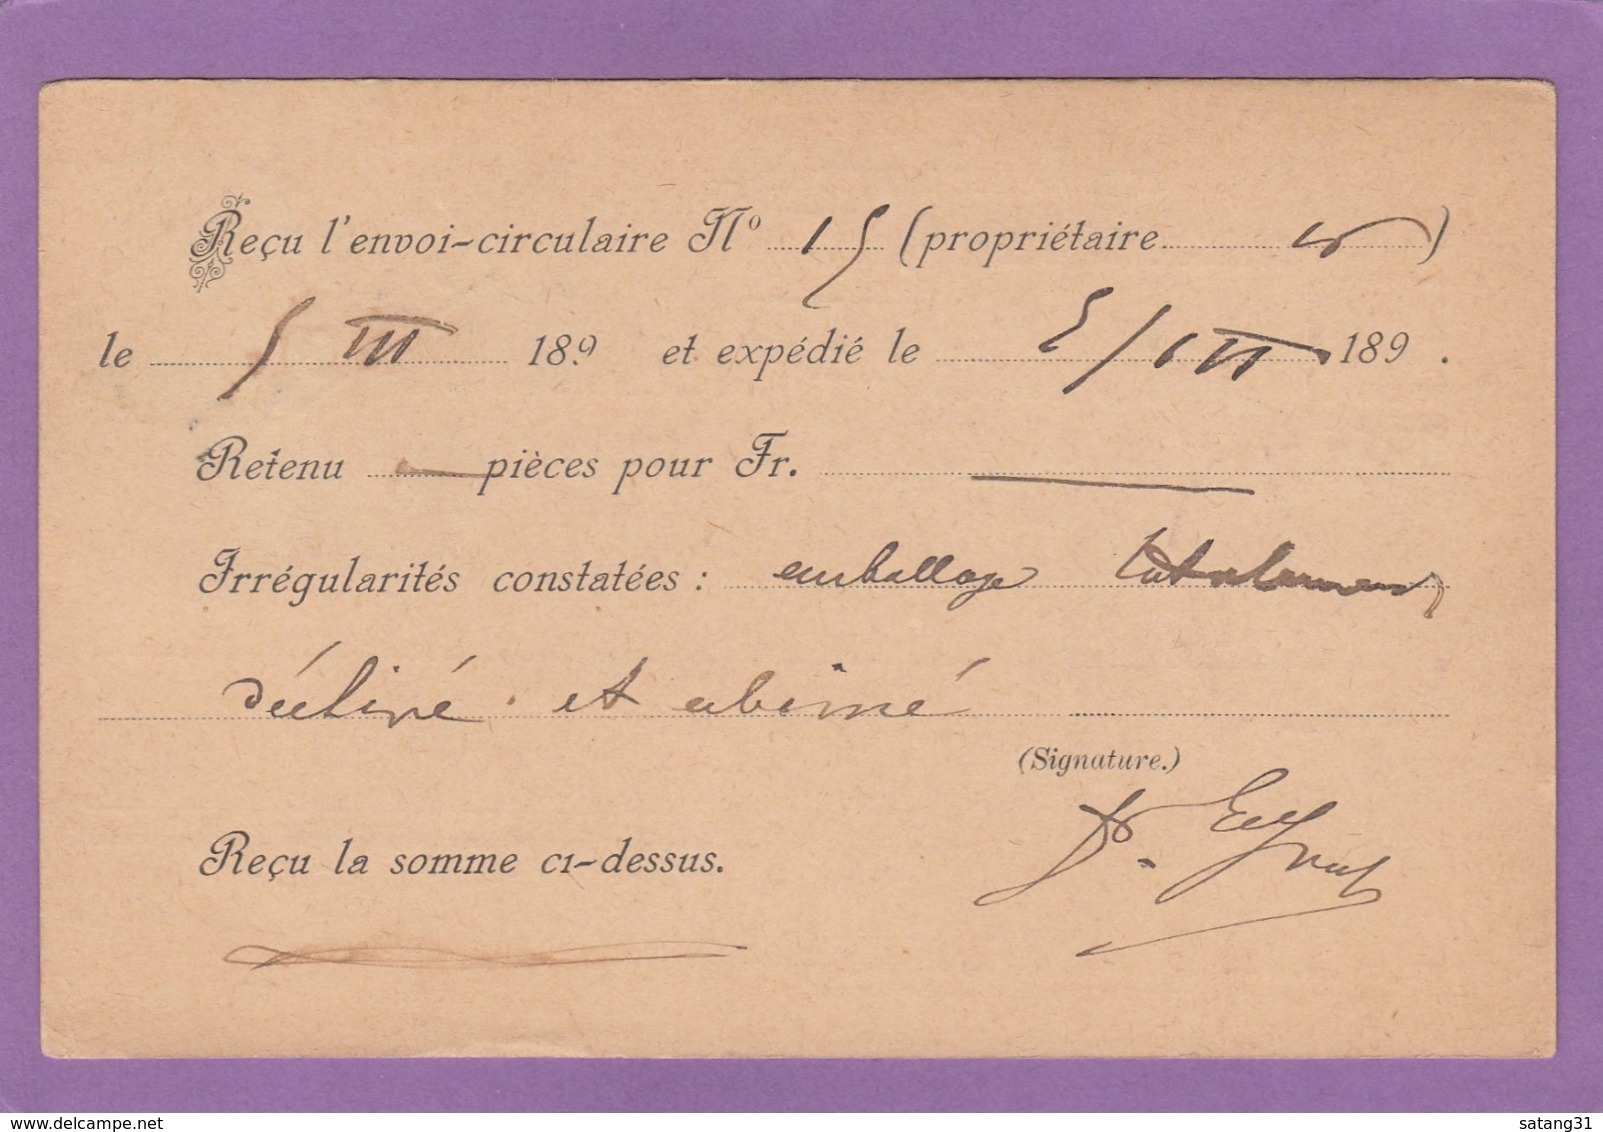 Reçu l'envoi-circulaire Nº 15 (propriétaire )
le 5 III 189 et expédié le 5/III 189 .
Retenu — pièces pour Fr. —
Irrégularités constatées : emballage totalement
déchiré et abimé
(Signature.)
Reçu la somme ci-dessus.
Dr.
satang31